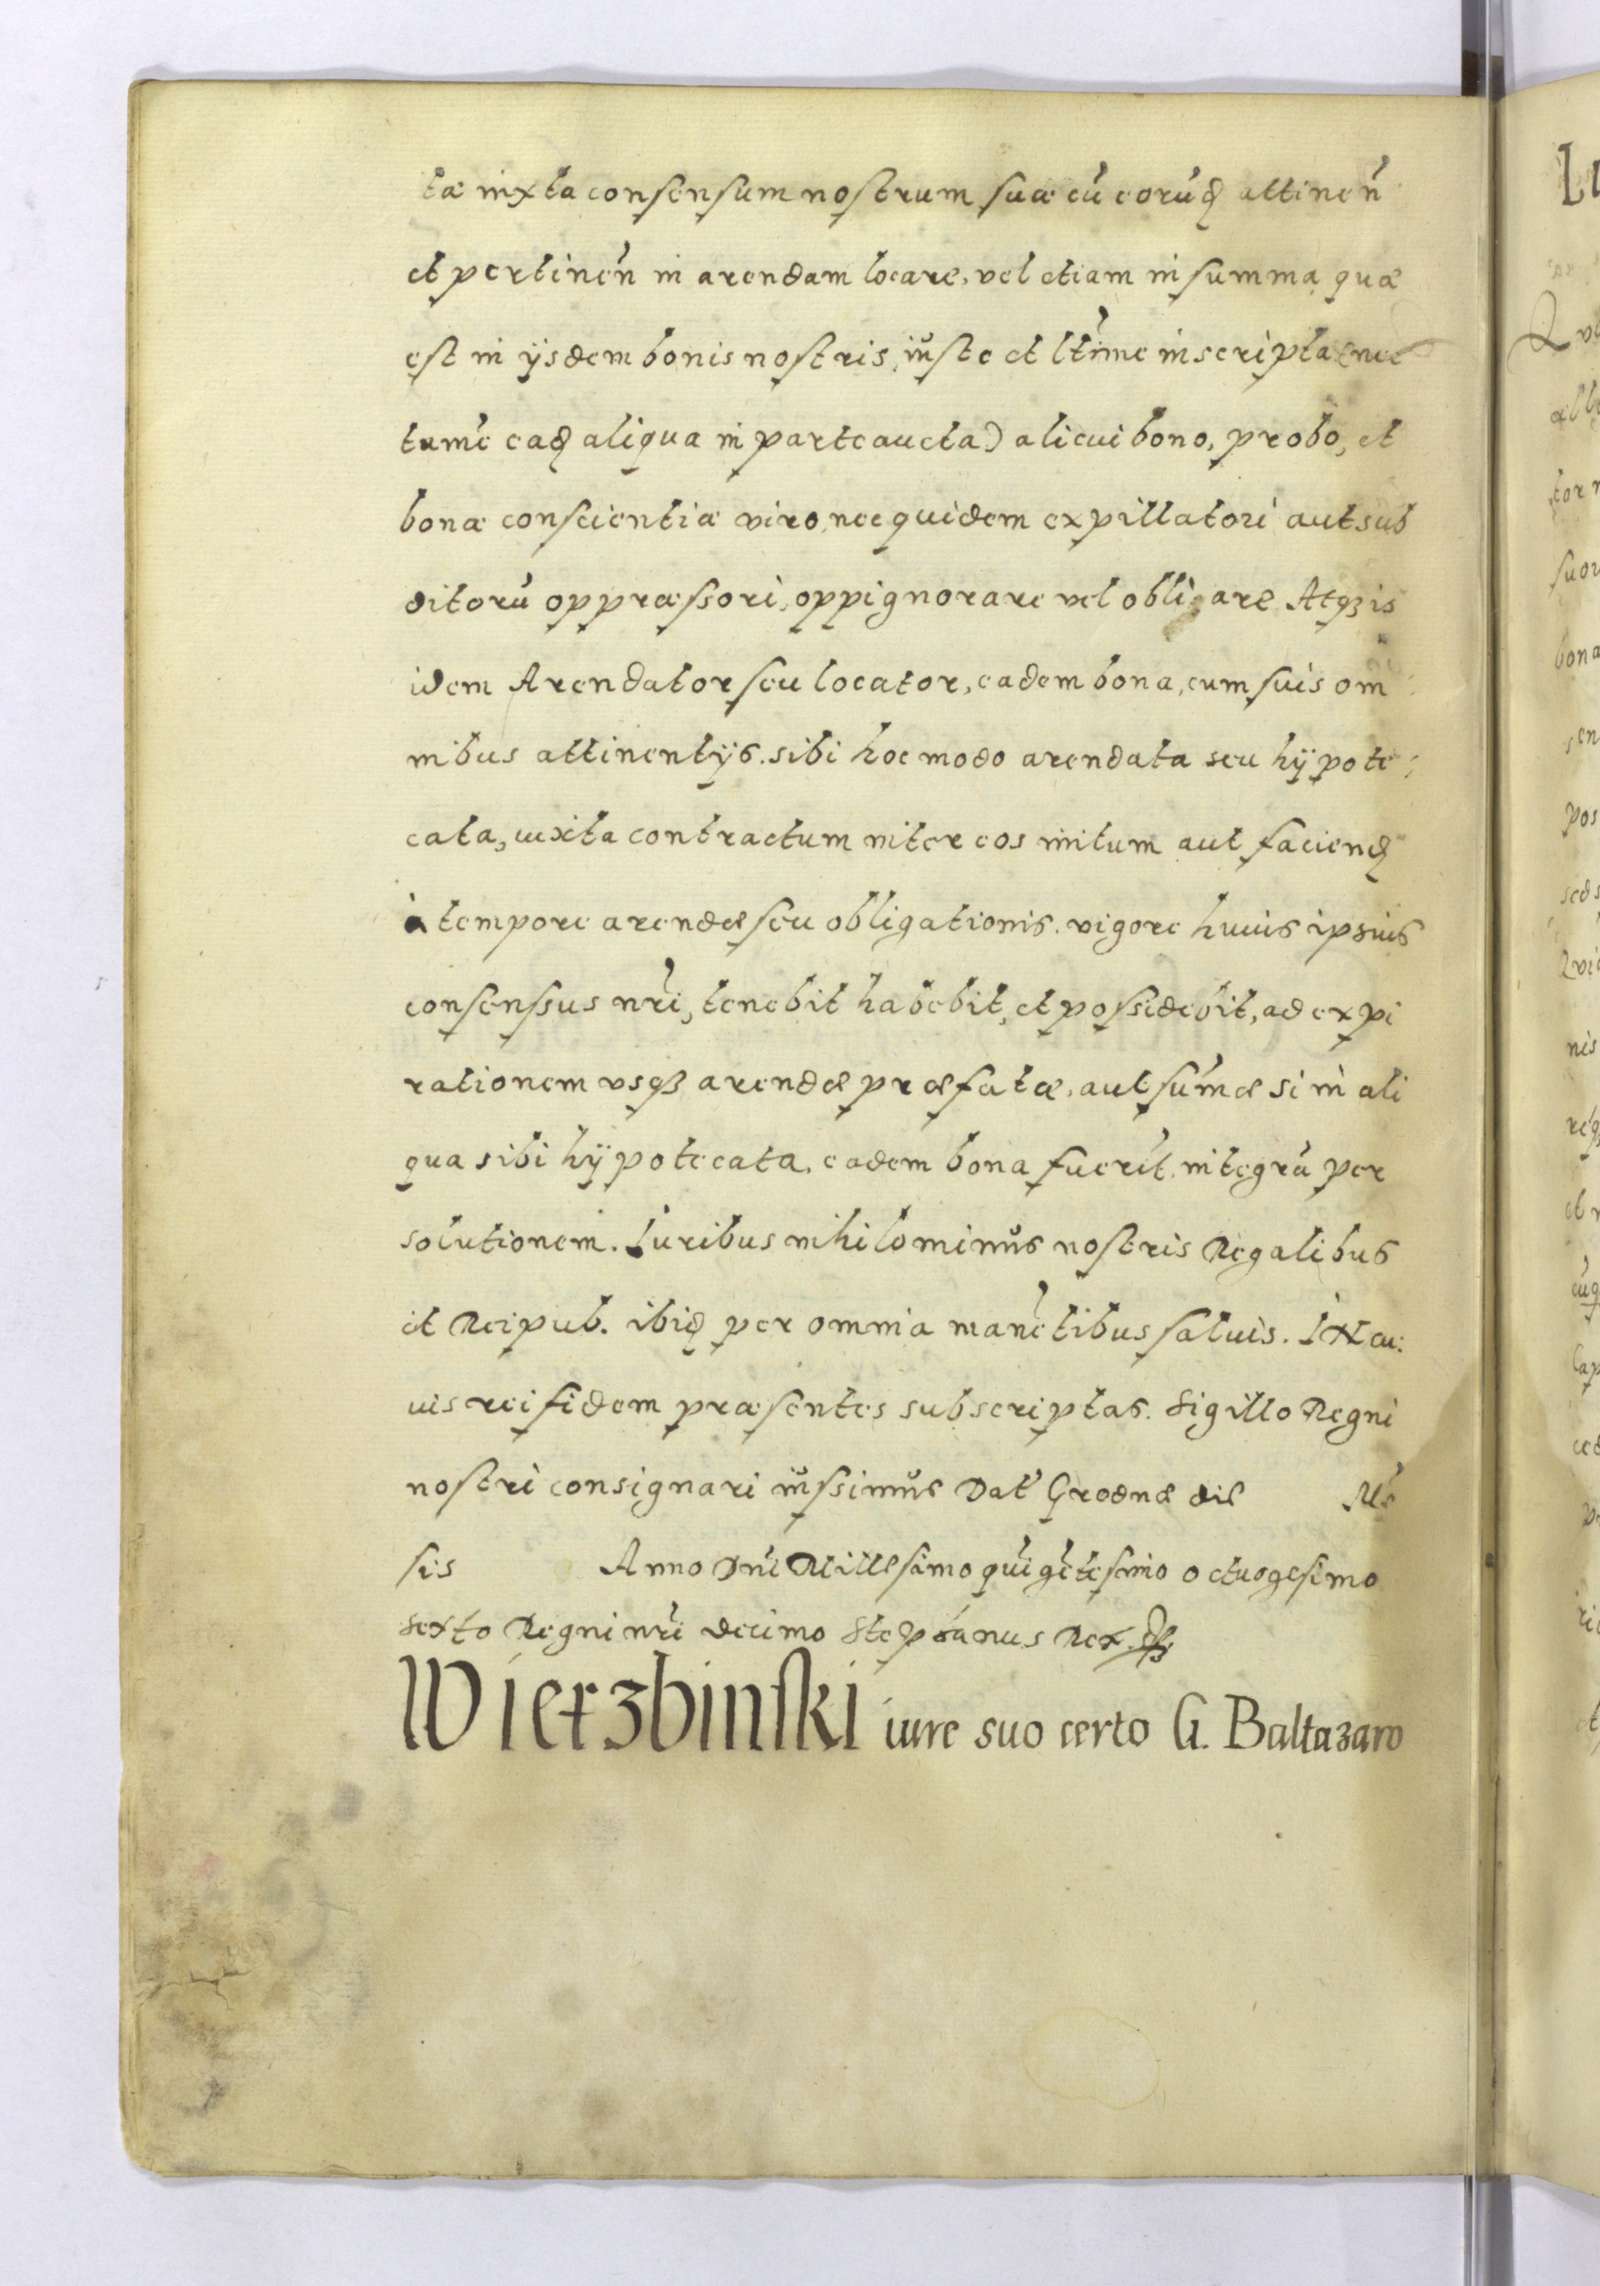 tæ iuxta consensum nostrum suæ cū eorūd attineñ
et pertineñ in arendam locare, vel etiam in summa quæ
est in ijsdem bonis nostris iuste et ltime inscripta (nec
tamē ead aliqua in parte aucta) alicui bono, probo, et
bonæ conscientiæ viro, nec quidem expillatori aut sub
ditorū oppræssori, oppignorare vel obligare Atqȝ is
idem Arendator seu locator, eadem bona, cum suis om
nibus attinentijs. sibi hoc modo arendata seu hÿpote
cata, iuxta contractum inter eos initum aut faciend
à tempore arendæ seu obligationis. vigore huius ipsius
consenssus nri, tenebit habebit, et possidebit, ad expi
rationem usqȝ arendæ præfatæ, aut sum̄æ si in ali
qua sibi hÿpotecata, eadem bona fuerīt, integrā per
solutionem. Iuribus nihilominŭs nostris Regalibus
et Reipub. ibid per omnia manētibus saluis. IN cu:
uis rei fidem præsentes subscriptas. Sigillo Regni
nostri consignari iŭssimŭs Dat Grodnæ die Mē
sis Anno Dni Millesimo quīgētesimo octuogesimo
sexto Regni nri decimo Stephanus Rex
Wierzbinski iure suo certo G. Baltazaro